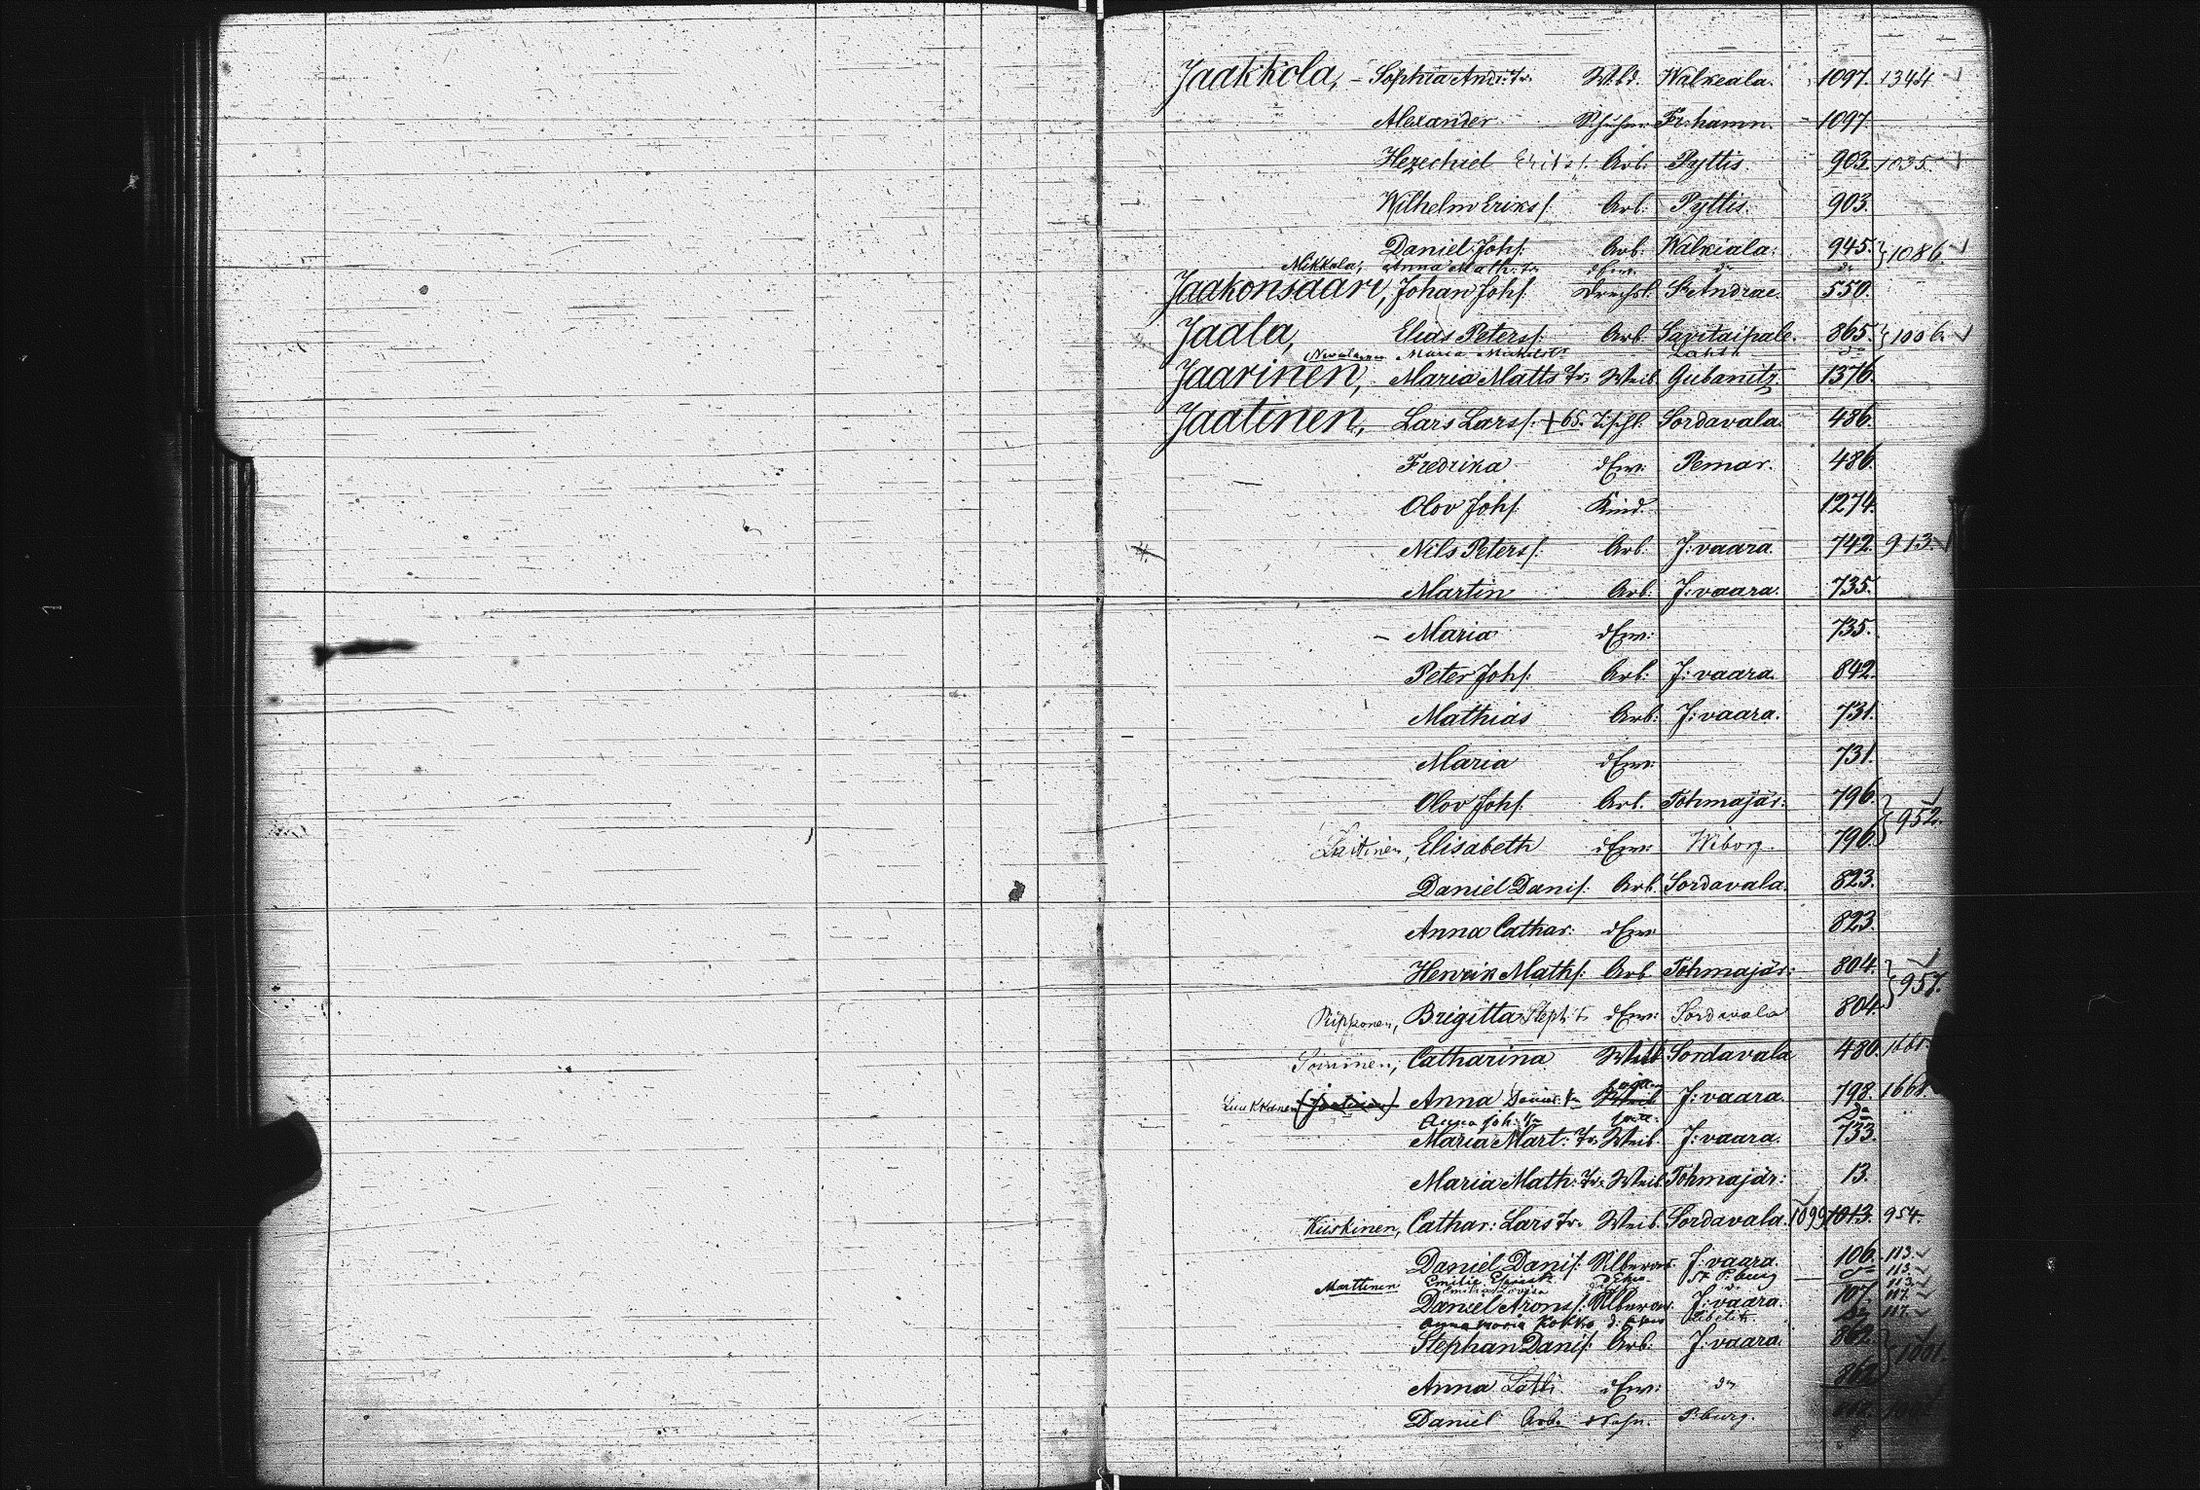 Jaakkola, - Sophia And: Tr. Wbd. Walkeala. 1097. 1344
Alexander Schuhm. Fr:hamn. 1097
Hezechiel Eriks f. Arb. Pyttis. 903. 1035.
Wilhelm Eriks f. Arb. Pyttis. 903.
Daniel Joh f. Arb. Walkiala. 945. } 1086.
Mikkola, Anna Math: Tr. d Erw. do do
Jaakonsaari, Johan Joh f. Drechsl. St Andrae. 550.
Jaala, Elias Peters f. Arb. Savitaipale. 865. } 1006.
Maria Michelst Lahti do
Jaarinen, Maria Matts Tr. Weib. Gubanitz. 1376.
Jaatinen, Lars Lars f. + 65. Tischl. Sordavala. 486.
Fredrika d Erw. Pemar. 486
Olov Joh f. Kind. 1274.
Nils Peters f. Arb. J:vaara. 742. 913.
Martin Arb. J:vaara. 735.
- Maria d Erw: 735.
Peter Joh f. Arb. J:vaara. 842.
Mathias Arb: J:vaara. 731.
Maria d Erw: 731.
Olov Joh f. Arb. Tohmajär: 796. } 952.
Laitinen, Elisabeth d Erw: Wiborg. 796.
Daniel Dani f. Arb. Sordavala. 823.
Anna Cathar: d Erw 823.
Henrik Math f. Arb Tohmajär: 804. } 957.
Piipponen, Brigitta Steph: t. d Erw: Sordavala 804.
Catharina Weib Sordavala 480. 1661.
Luukkanen (Jaatinen) Anna Weib J:vaara. 798. 1661.
Anna Joh: Do
Maria Mart: Tr. Weib. J:vaara. 733.
Maria Math: Tr. Weib. Tohmajär: 13.
Kiiskinen, Cathar: Lars Tr. Weib. Sordavala. 1099 1013. 954.
Daniel Dani f. J:vaara. 106. 113.
Marttinen Emilie d Erw. St P:burg 113.
113.
Daniel Arons f. J:vaara. 107. 117.
Anna Maria Kokko d. Erw Libelitz. Do 117.
Stephan Dani f. Arb. J:vaara. 862. } 1001.
Anna d Erw: do 862
Daniel Arb. P:burg.